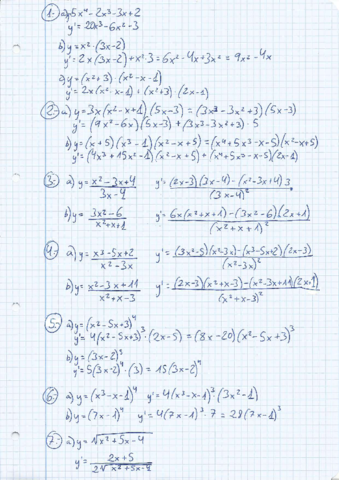 1- a) y=5x⁴-2x³-3x+2
y'=20x³-6x²+3
b) y=x²·(3x-2)
y'=2x(3x-2)+x²·3=6x²-4x+3x²=9x²-4x
c) y=(x²+3)·(x²-x-1)
y'=2x(x²-x-1)+(x²+3)·(2x-1)
2- a) y=3x(x²-x+1)(5x-3)=(3x³-3x²+3)(5x-3)
y'=(9x²-6x)(5x-3)+(3x³-3x²+3)·5
b) y=(x+5)(x³-1)(x²-x+5)=(x⁴+5x³-x-5)(x²-x+5)
y'=(4x³+15x²-1)(x²-x+5)+(x⁴+5x³-x-5)(2x-1)
3- a) y=\frac{x²-3x+4}{3x-4} y'=\frac{(2x-3)(3x-4)-(x²-3x+4)3}{(3x-4)²}
b) y=\frac{3x²-6}{x²+x+1} y'=\frac{6x(x²+x+1)-(3x²-6)(2x+1)}{(x²+x+1)²}
4- a) y=\frac{x³-5x+2}{x²-3x} y'=\frac{(3x²-5)(x²-3x)-(x³-5x+2)(2x-3)}{(x²-3x)²}
b) y=\frac{x²-3x+11}{x²+x-3} y'=\frac{(2x-3)(x²+x-3)-(x²-3x+11)(2x+1)}{(x²+x-3)²}
5- a) y=(x²-5x+3)⁴
y'=4(x²-5x+3)³·(2x-5)=(8x-20)(x²-5x+3)³
b) y=(3x-2)⁵
y'=5(3x-2)⁴·(3)=15(3x-2)⁴
6- a) y=(x³-x-1)⁴ y'=4(x³-x-1)³·(3x²-1)
b) y=(7x-1)⁴ y'=4(7x-1)³·7=28(7x-1)³
7- a) y=√(x²+5x-4)
y'=\frac{2x+5}{2√(x²+5x-4)}